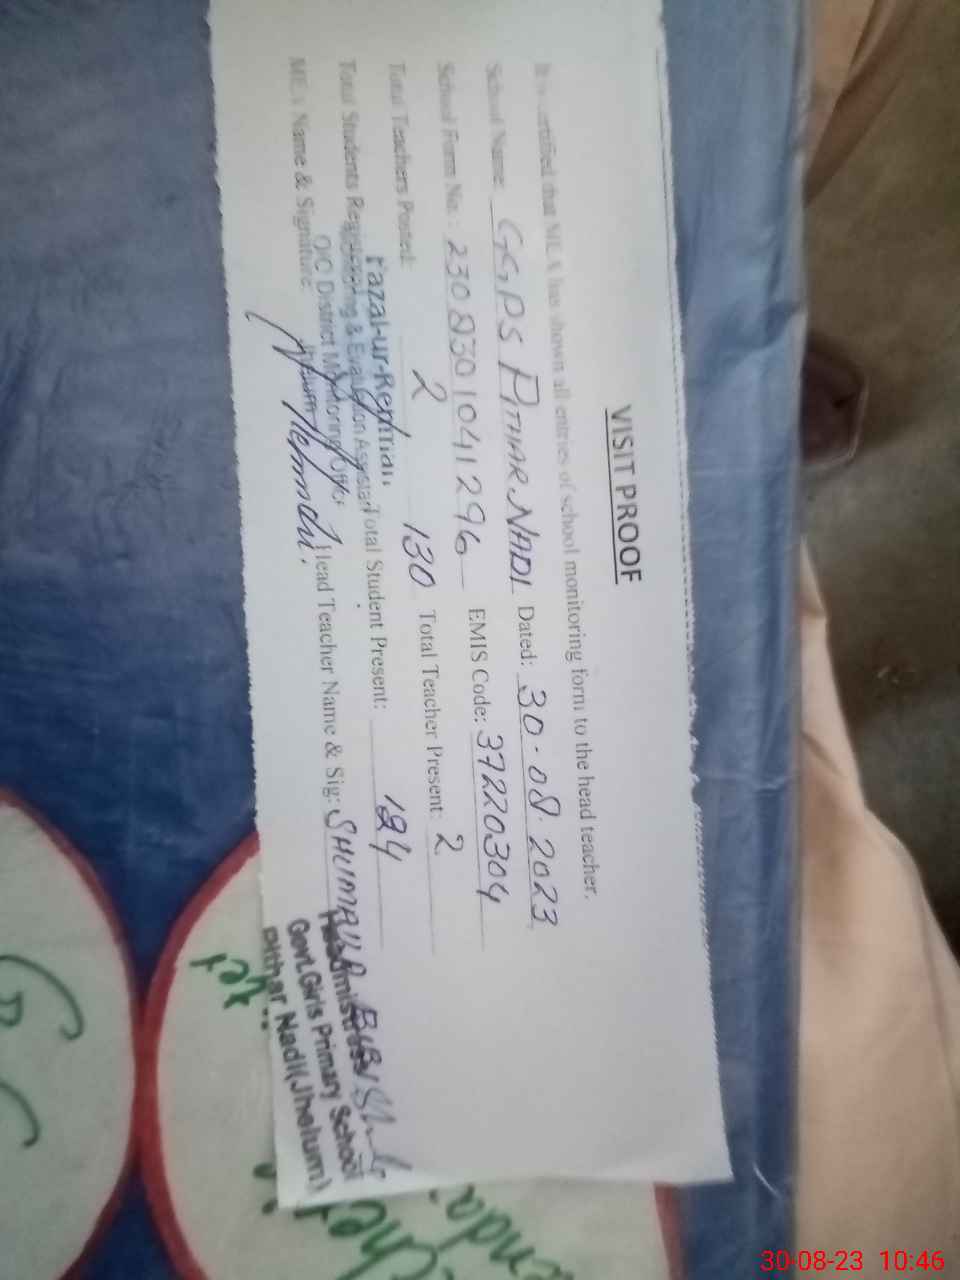 VISIT PROOF
It is certified that MEA has shown all entries of school monitoring form to the head teacher.
School Name: GGPS PITHAR NADI Dated: 30.08.2023
School Form No.: 230830 1041296 EMIS Code: 37220304
Total Teachers Posted: 2 Total Teacher Present: 2
Total Students 130 Total Student Present: 124
MEA Name & Signature: Head Teacher Name & Sig: SHUMAILA BIBI
Fazal-ur-Rehman
Monitoring & Evaluation Assistant
O/O District Monitoring Officer
Jhelum
Headmistress
Govt. Girls Primary School
Pithar Nadi (Jhelum)
30-08-23 10:46